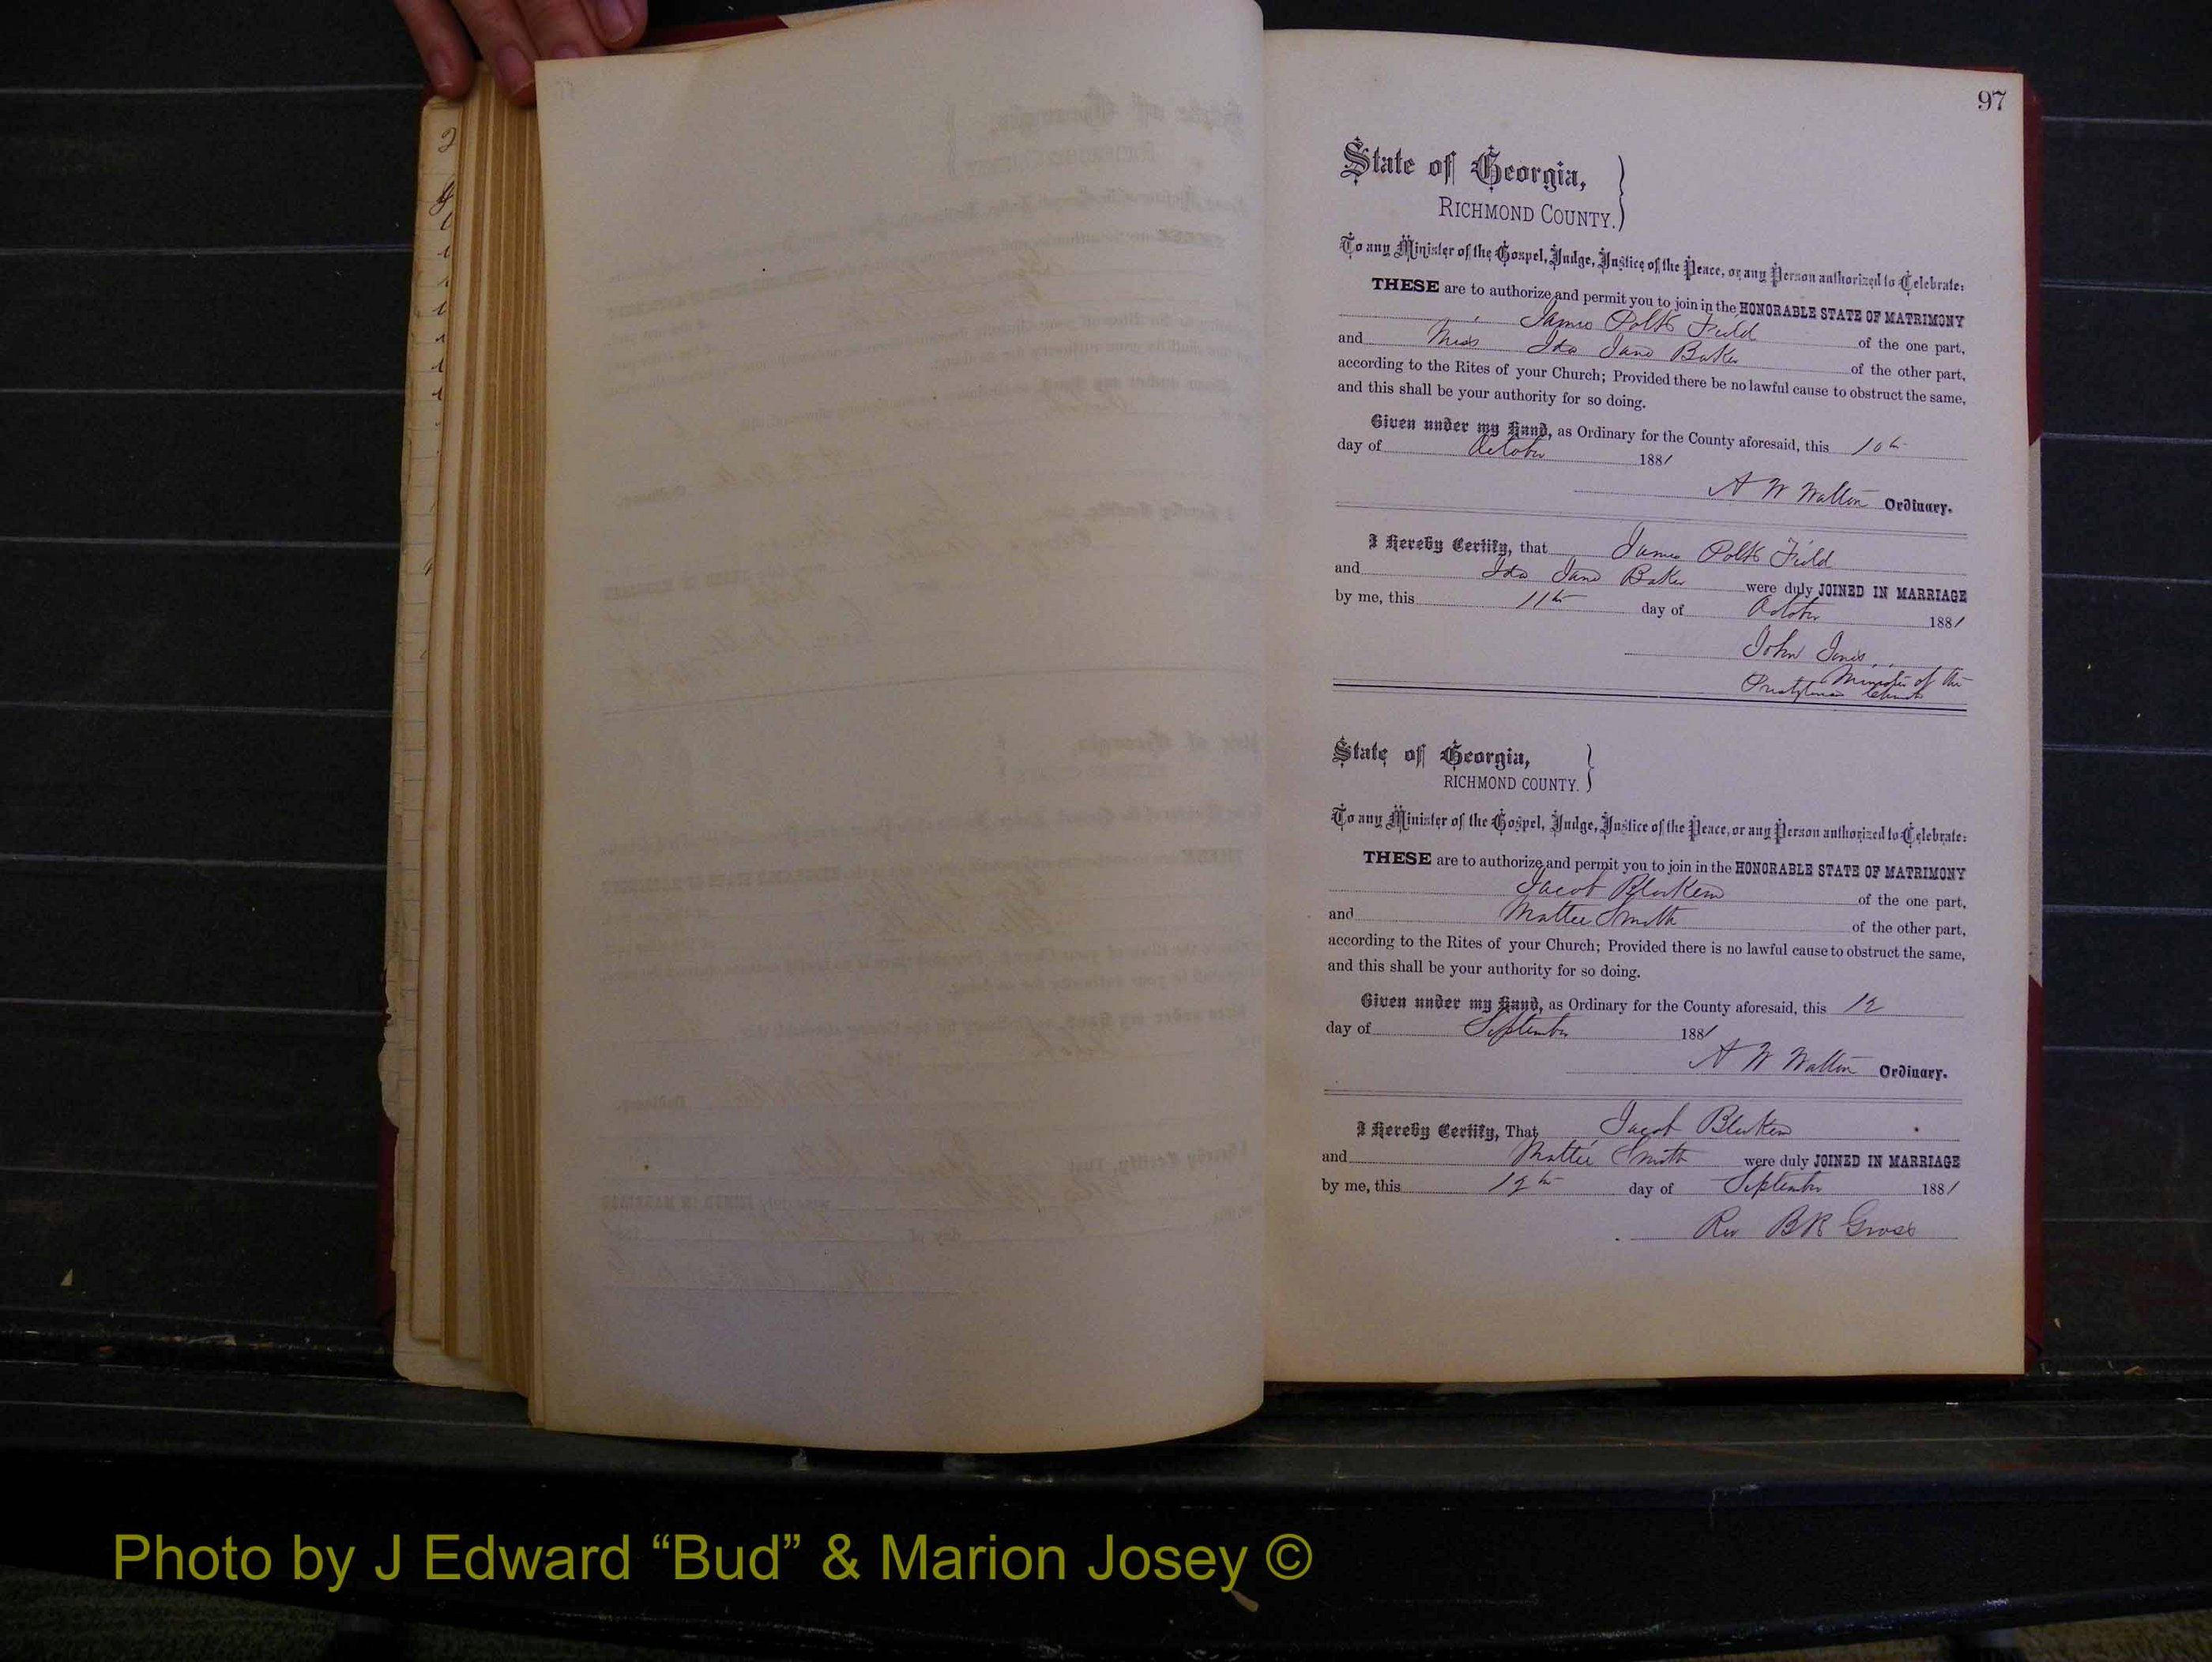 97
State of Georgia,
RICHMOND COUNTY.
To any Minister of the Gospel, Judge, Justice of the Peace, or any Person authorized to Celebrate:
THESE are to authorize and permit you to join in the HONORABLE STATE OF MATRIMONY
James Polk Field of the one part,
and Miss Ida Jane Baker of the other part,
according to the Rites of your Church; Provided there be no lawful cause to obstruct the same,
and this shall be your authority for so doing.
Given under my Hand, as Ordinary for the County aforesaid, this 10th
day of October 1881
A W Walton Ordinary.
I Hereby Certify, that James Polk Field
and Ida Jane Baker were duly JOINED IN MARRIAGE
by me, this 11th day of October 1881
John Jones,
Minister of the
Presbyterian Church
State of Georgia,
RICHMOND COUNTY.
To any Minister of the Gospel, Judge, Justice of the Peace, or any Person authorized to Celebrate:
THESE are to authorize and permit you to join in the HONORABLE STATE OF MATRIMONY
Jacob of the one part,
and Mattie Smith of the other part,
according to the Rites of your Church; Provided there is no lawful cause to obstruct the same,
and this shall be your authority for so doing.
Given under my Hand, as Ordinary for the County aforesaid, this 12
day of September 1881
A W Walton Ordinary.
I Hereby Certify, That Jacob
and Mattie Smith were duly JOINED IN MARRIAGE
by me, this 12th day of September 1881
Rev BR Gross
Photo by J Edward “Bud” & Marion Josey ©